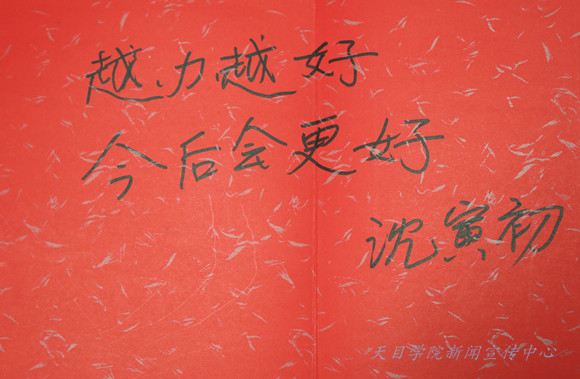 越力越好
今后会更好
沈寅初
天目学院新闻宣传中心